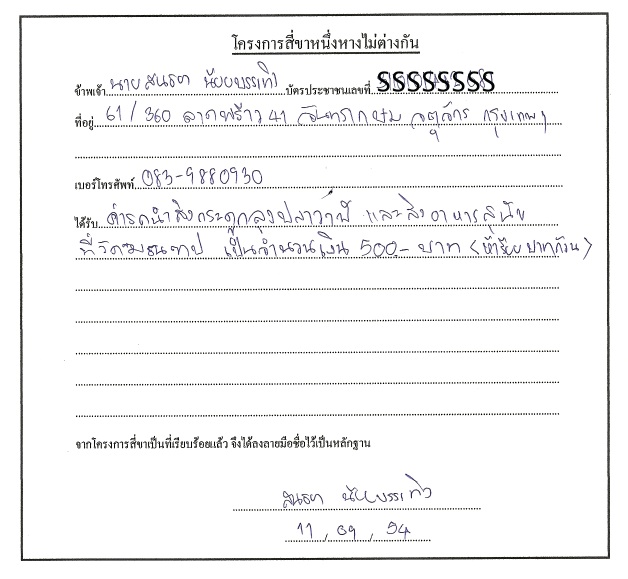 โครงการสี่ขาหนึ่งหางไม่ต่างกัน
ข้าพเจ้า นาย บัตรประชาชนเลขที่ SSSSSSSS
ที่อยู่ 61/360 ลาดพร้าว 41 จันทรเกษม จตุจักร กรุงเทพฯ
เบอร์โทรศัพท์ 083-9880930
ได้รับ ค่ารถนำส่งกระดูกลุงปลาวาฬ และส่งอาหารสุนัข
ที่วัด เป็นจำนวนเงิน 500.- บาท (ห้าร้อยบาทถ้วน)
จากโครงการสี่ขาเป็นที่เรียบร้อยแล้ว จึงได้ลงลายมือชื่อไว้เป็นหลักฐาน
11, 09, 54